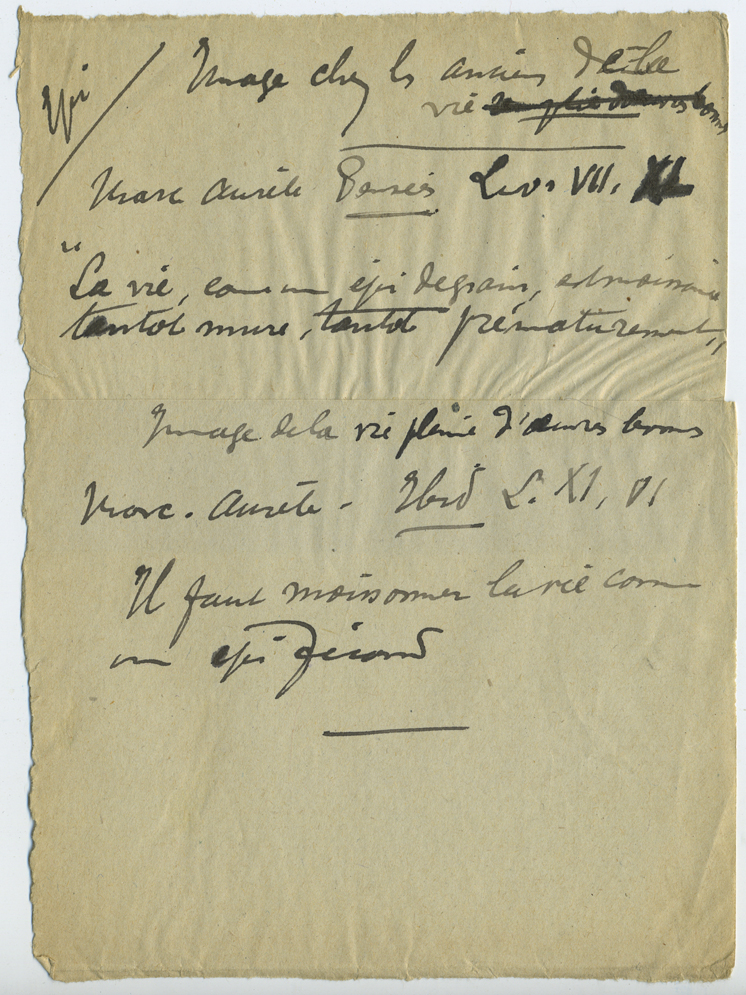 Epi / Image chez les anciens de la
vie remplie d'œuvres bonnes
Marc Aurèle Pensées Livr VII, XL
"La vie, comme un épi de grain, est moissonnée
tantot mure, tantot prématurement"
Image de la vie pleine d'œuvres bonnes
Marc-Aurèle - Ibid L. XI, VI
Il faut moissonner la vie comme
un epi fécond